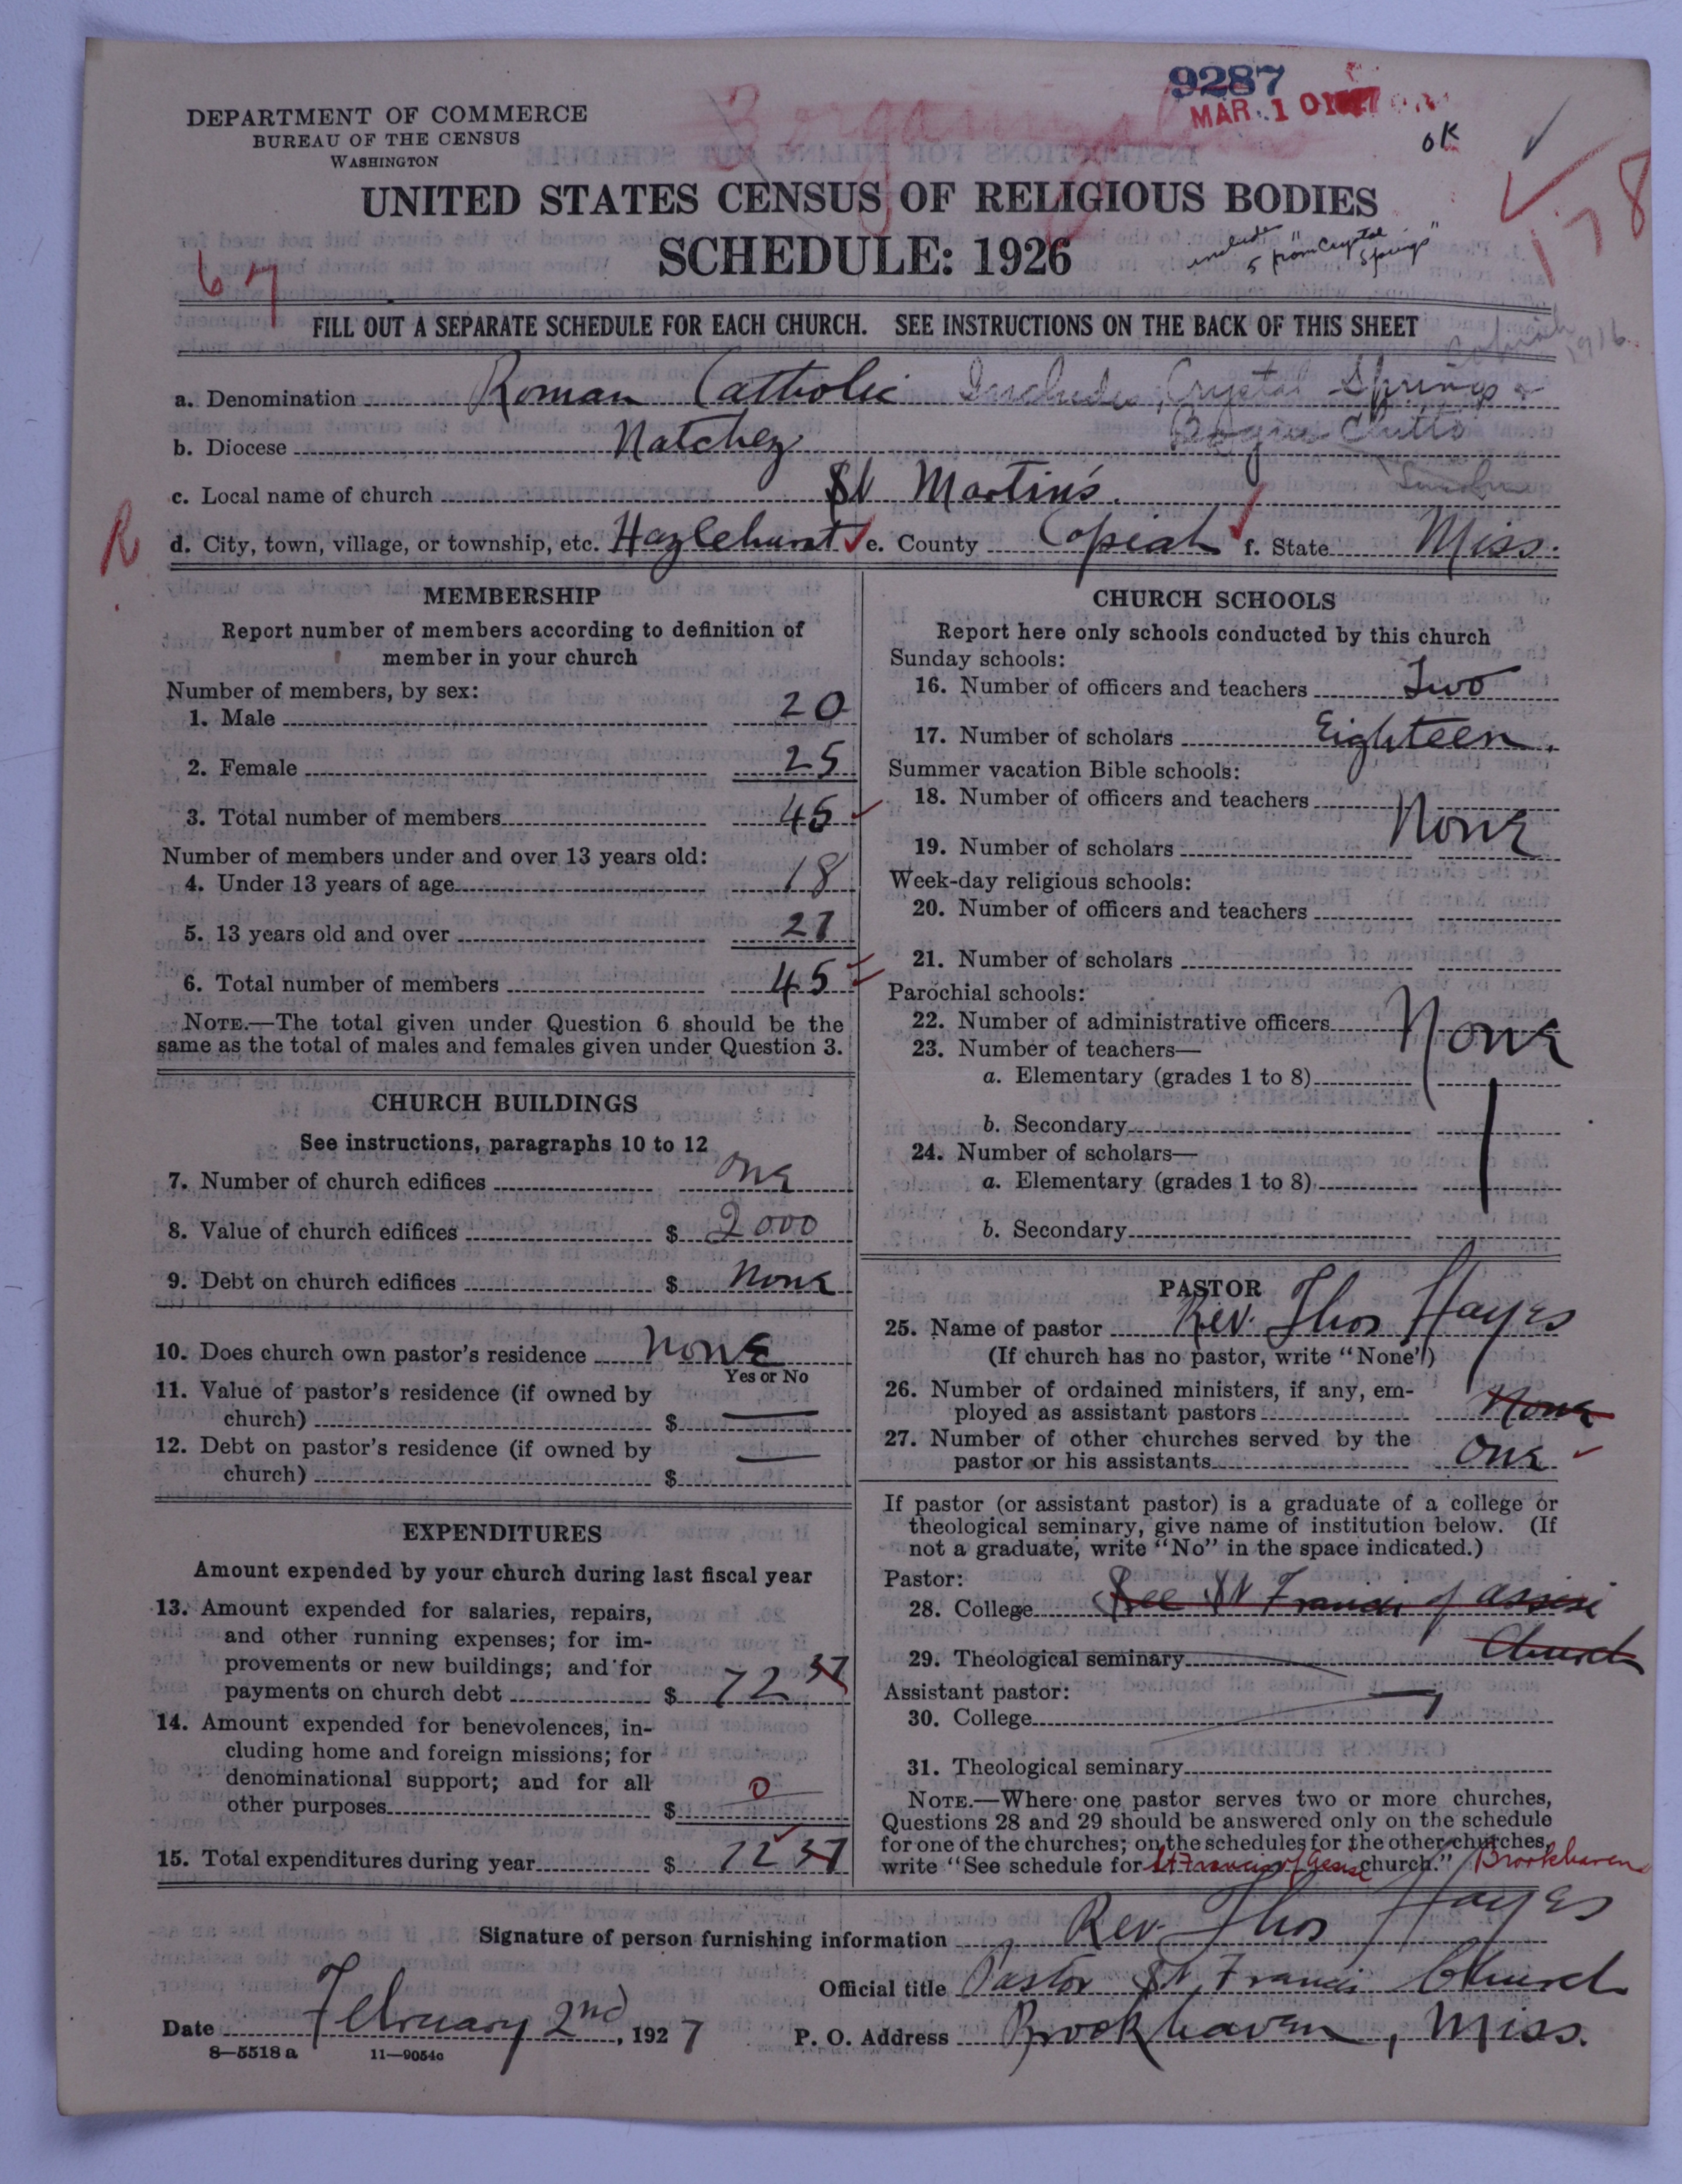 9287
MAR. 10 1927
DEPARTMENT OF COMMERCE
BUREAU OF THE CENSUS
WASHINGTON
OK
178
UNITED STATES CENSUS OF RELIGIOUS BODIES
SCHEDULE: 1926
include
5 from "Crystal
Springs"
67
FILL OUT A SEPARATE SCHEDULE FOR EACH CHURCH. SEE INSTRUCTIONS ON THE BACK OF THIS SHEET
1916
a. Denomination Roman Catholic Include Crystal Springs &
b. Diocese Natchez Bogue Chitto
c. Local name of church St Martin's. Lincoln
R d. City, town, village, or township, etc. Hazlehurst e. County Copiah f. State Miss.
MEMBERSHIP
Report number of members according to definition of
member in your church
Number of members, by sex:
1. Male 20
2. Female 25
3. Total number of members 45
Number of members under and over 13 years old:
4. Under 13 years of age 18
5. 13 years old and over 27
6. Total number of members 45
NOTE.—The total given under Question 6 should be the
same as the total of males and females given under Question 3.
CHURCH BUILDINGS
See instructions, paragraphs 10 to 12
7. Number of church edifices one
8. Value of church edifices $ 2000
9. Debt on church edifices $ None
10. Does church own pastor's residence None
Yes or No
11. Value of pastor's residence (if owned by
church) $ —
12. Debt on pastor's residence (if owned by
church) $ —
EXPENDITURES
Amount expended by your church during last fiscal year
13. Amount expended for salaries, repairs,
and other running expenses; for im-
provements or new buildings; and for
payments on church debt $ 72 37
14. Amount expended for benevolences, in-
cluding home and foreign missions; for
denominational support; and for all
other purposes $ 0
15. Total expenditures during year $ 72 37
CHURCH SCHOOLS
Report here only schools conducted by this church
Sunday schools:
16. Number of officers and teachers Two
17. Number of scholars Eighteen.
Summer vacation Bible schools:
18. Number of officers and teachers None
19. Number of scholars
Week-day religious schools:
20. Number of officers and teachers
21. Number of scholars
Parochial schools:
22. Number of administrative officers None
23. Number of teachers—
a. Elementary (grades 1 to 8)
b. Secondary
24. Number of scholars—
a. Elementary (grades 1 to 8)
b. Secondary
PASTOR
25. Name of pastor Rev. Thos Hayes
(If church has no pastor, write "None")
26. Number of ordained ministers, if any, em-
ployed as assistant pastors None
27. Number of other churches served by the
pastor or his assistants One
If pastor (or assistant pastor) is a graduate of a college or
theological seminary, give name of institution below. (If
not a graduate, write "No" in the space indicated.)
Pastor:
28. College See St Francis of Assisi
29. Theological seminary Church
Assistant pastor:
30. College —
31. Theological seminary
NOTE.—Where one pastor serves two or more churches,
Questions 28 and 29 should be answered only on the schedule
for one of the churches; on the schedules for the other churches,
write "See schedule for St Francis of church." Brookhaven
Signature of person furnishing information Rev. Thos Hayes
Official title Pastor St. Francis Church
Date February 2nd, 1927 P. O. Address Brookhaven, Miss.
8—5518 a 11—9054c